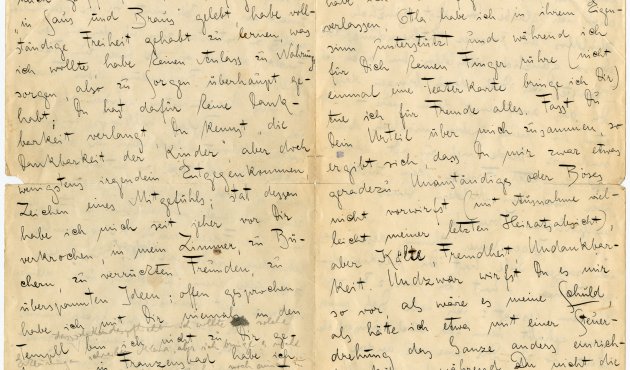 "in Saus und Braus" gelebt, habe voll-
ständige Freiheit gehabt zu lernen, was
ich wollte, habe keinen Anlass zu Nahrungs
sorgen, also zu Sorgen überhaupt ge-
habt; Du hast dafür keine Dank-
barkeit verlangt, Du kennst „die
Dankbarkeit der Kinder" aber doch
wenigstens irgendein Entgegenkommen,
Zeichen eines Mitgefühls; statt dessen
habe ich mich seit jeher vor Dir
verkrochen, in mein Zimmer, zu Bü-
chern, zu verrückten Freunden, zu
überspannten Ideen; offen gesprochen
habe ich mit Dir niemals, in den
Tempel bin ich nicht zu Dir ge-
in Franzensbad habe ich
verlassen Otla habe ich in ihrem Eigen-
sinn unterstützt und während ich
für Dich keinen Finger rühre (nicht
einmal eine Teaterkarte bringe ich Dir)
tue ich für Fremde alles. Fasst Du
Dein Urteil über mich zusammen, so
ergibt sich, dass Du mir zwar etwas
geradezu Unanständiges oder Böses
nicht vorwirfst (mit Ausnahme viel-
leicht meiner letzten Heiratsabsicht),
aber Kälte, Fremdheit, Undankbar-
keit. Undzwar wirfst Du es mir
so vor, als wäre es meine Schuld,
als hätte ich etwa mit einer Steuer-
drehung das Ganze anders einrich-
während Du nicht die